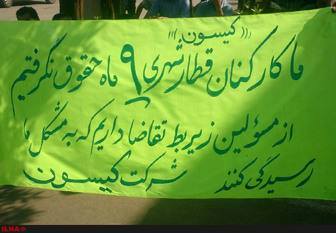 (((کیسون)))
ما کارکنان قطار شهری ۹ ماه حقوق نگرفتیم
از مسئولین زیربط تقاضا داریم که به مشکل ما
رسیدگی کنند شرکت کیسون
ILNA